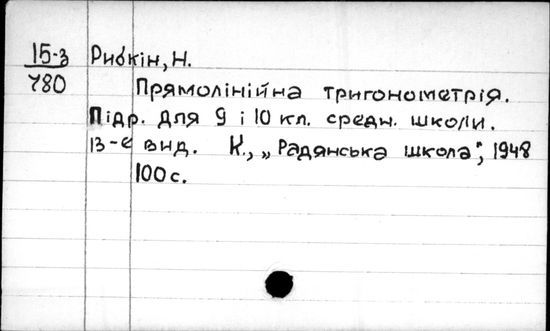 15-з Рибкін, Н.
780
Прямолінійна тригонометрія.
Підр. для 9 і 10 кл. средн. школи.
13-е вид. К., „Радянська школа", 1948
100 с.